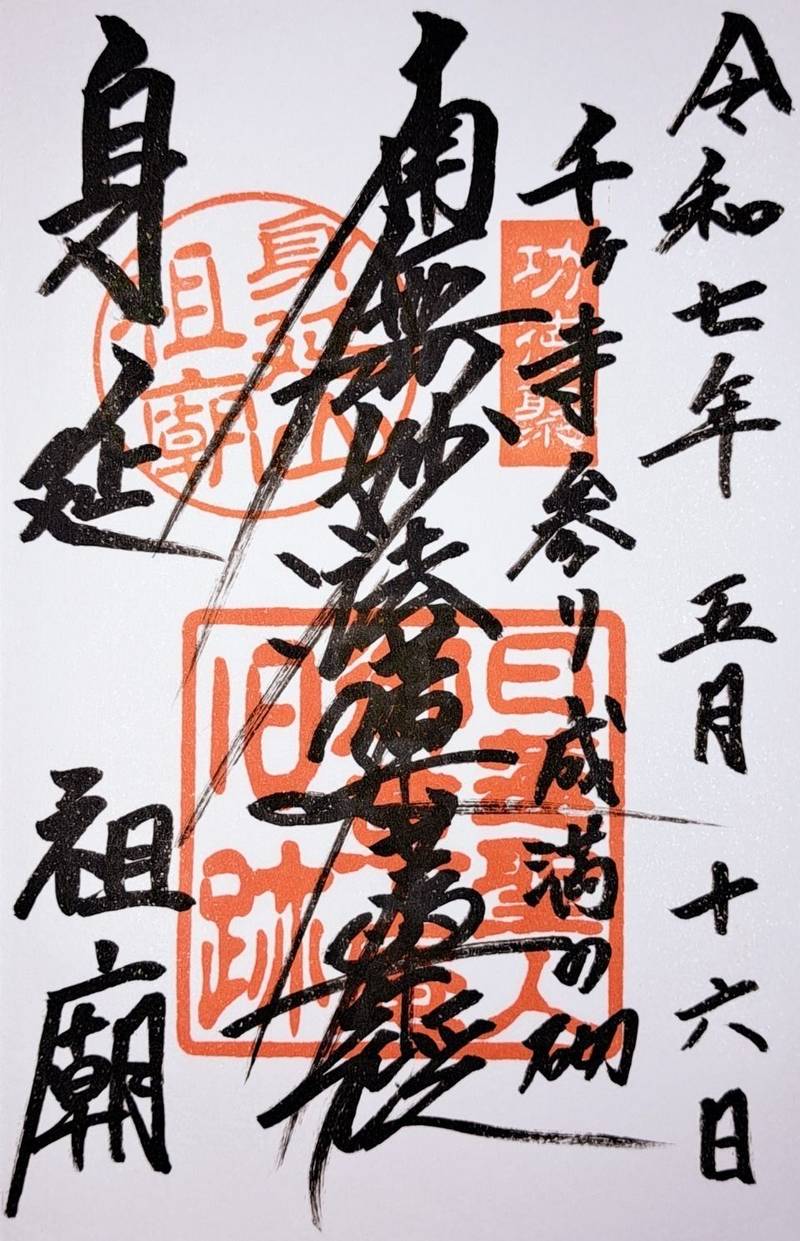 令和七年 五月 十六日
千ヶ寺参り成満の砌
功徳聚
南無妙法蓮華經
身延山
祖廟
日蓮聖人
旧跡
身延 祖廟